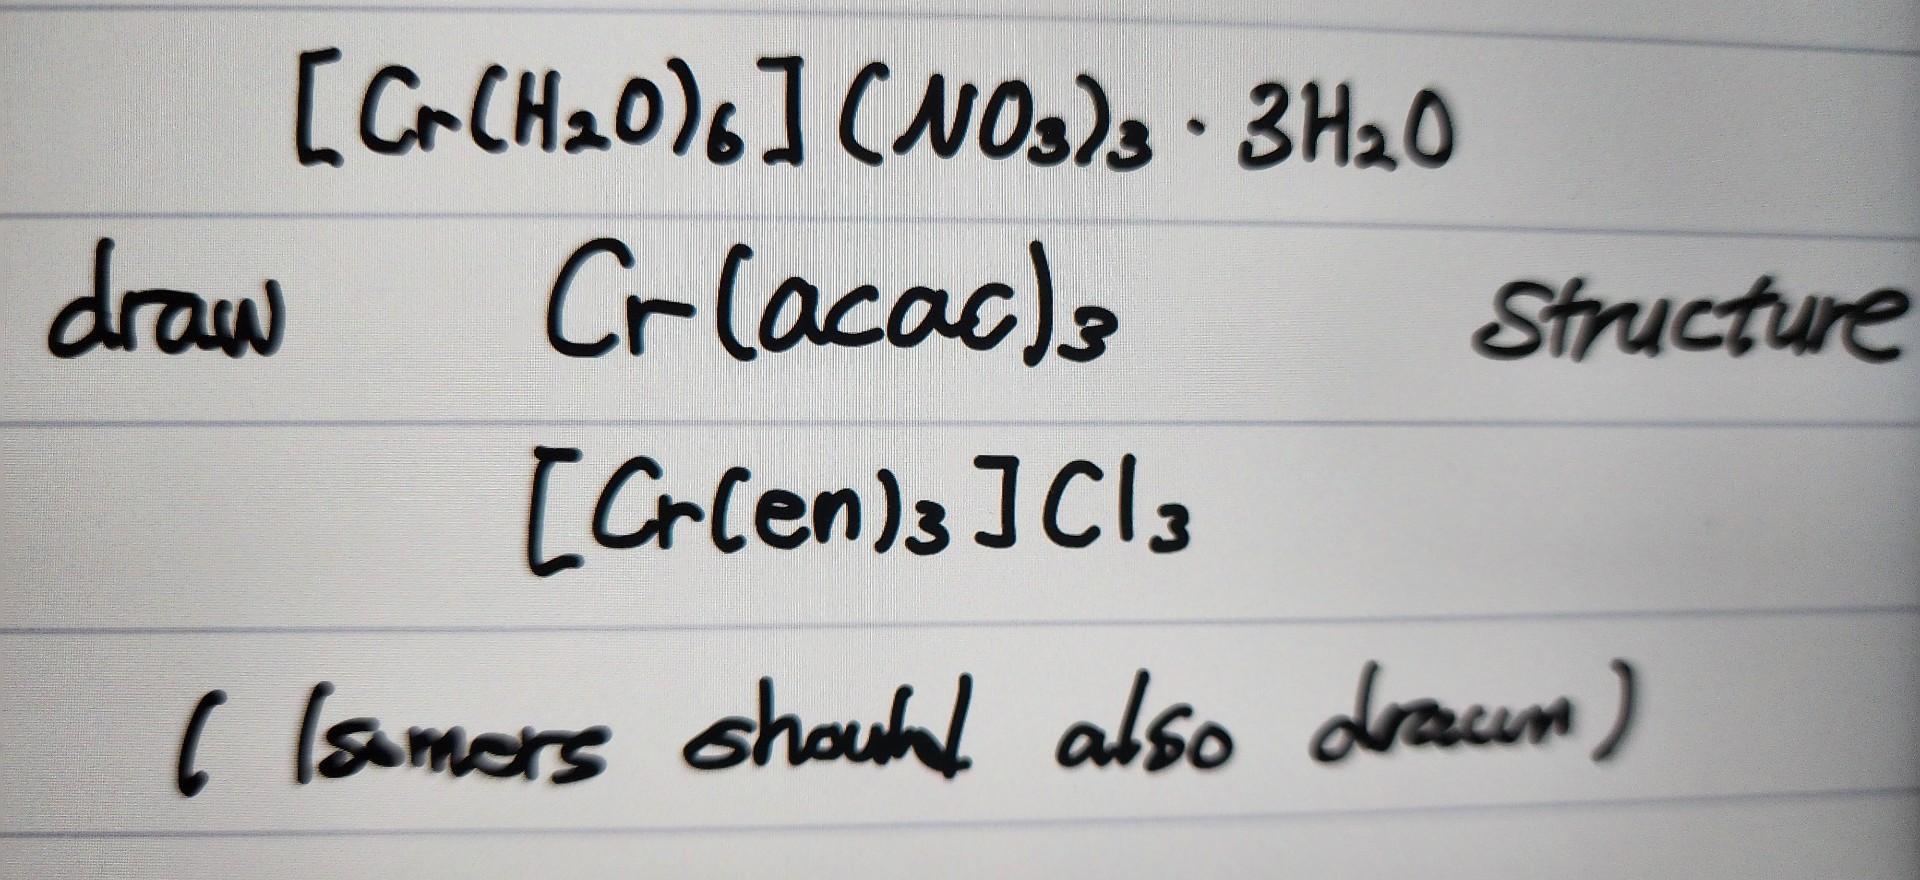 [Cr(H₂O)₆](NO₃)₃ · 3H₂O
draw Cr(acac)₃ structure
[Cr(en)₃]Cl₃
(Isomers should also drawn)